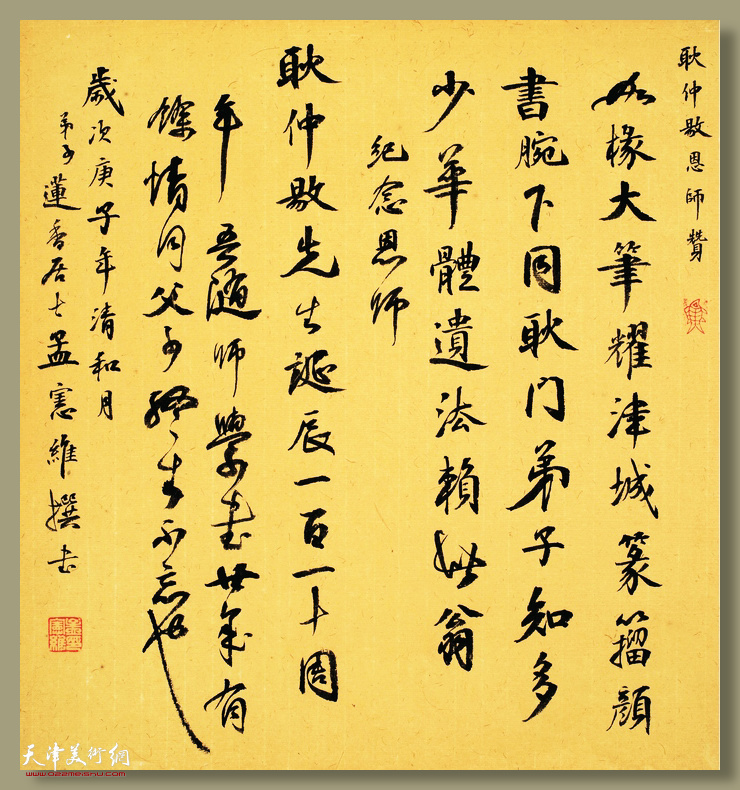 耿仲敭恩師贊
如椽大筆耀津城篆籀顏
書腕下同耿门弟子知多
少華體遺法賴此翁
紀念恩师
耿仲敭先生誕辰一百一十周
年 吾随师學书廿年有
餘情同父子终生不忘也
歲次庚子年清和月
弟子蓮香居士孟憲維撰书
天津美術網
www.022meishu.com